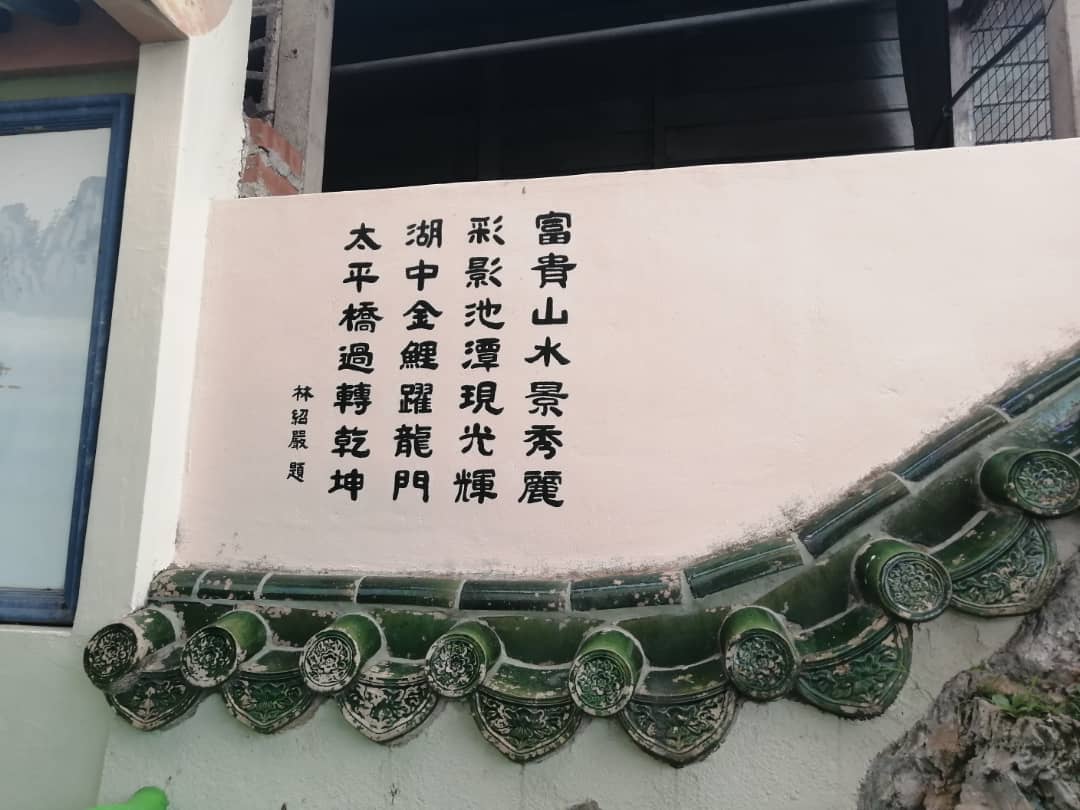 富貴山水景秀麗
彩影池潭現光輝
湖中金鯉躍龍門
太平橋過轉乾坤
林紹嚴題